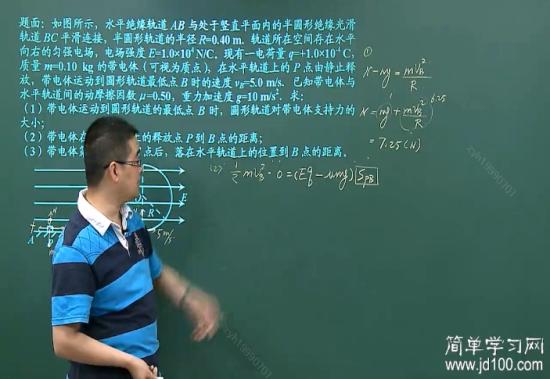 题面：如图所示，水平绝缘轨道AB与处于竖直平面内的半圆形绝缘光滑
轨道BC平滑连接，半圆形轨道的半径R=0.40 m. 轨道所在空间存在水平
向右的匀强电场，电场强度E=1.0×10⁴ N/C, 现有一电荷量q=+1.0×10⁻⁴ C,
质量m=0.10 kg的带电体（可视为质点），在水平轨道上的P点由静止释
放，带电体运动到圆形轨道最低点B时的速度vB=5.0 m/s. 已知带电体与
水平轨道间的动摩擦因数μ=0.50, 重力加速度g=10 m/s². 求：
（1）带电体运动到圆形轨道的最低点B时，圆形轨道对带电体支持力的
大小；
（2）带电体在 的释放点P到B点的距离；
（3）带电体第 点后，落在水平轨道上的位置到B点的距离。
E
R
A
5m/s
①
N-mg=mVB²/R
N=mg+mVB²/R
6.25
=7.25(N)
(2) ½mVB²-0=(Eq-μmg)SPB
zyh1999070
简单学习网
www.jd100.com